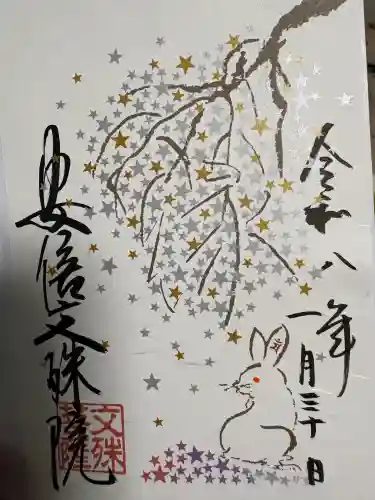 令和八年
一月三十日
安倍文殊院
文殊